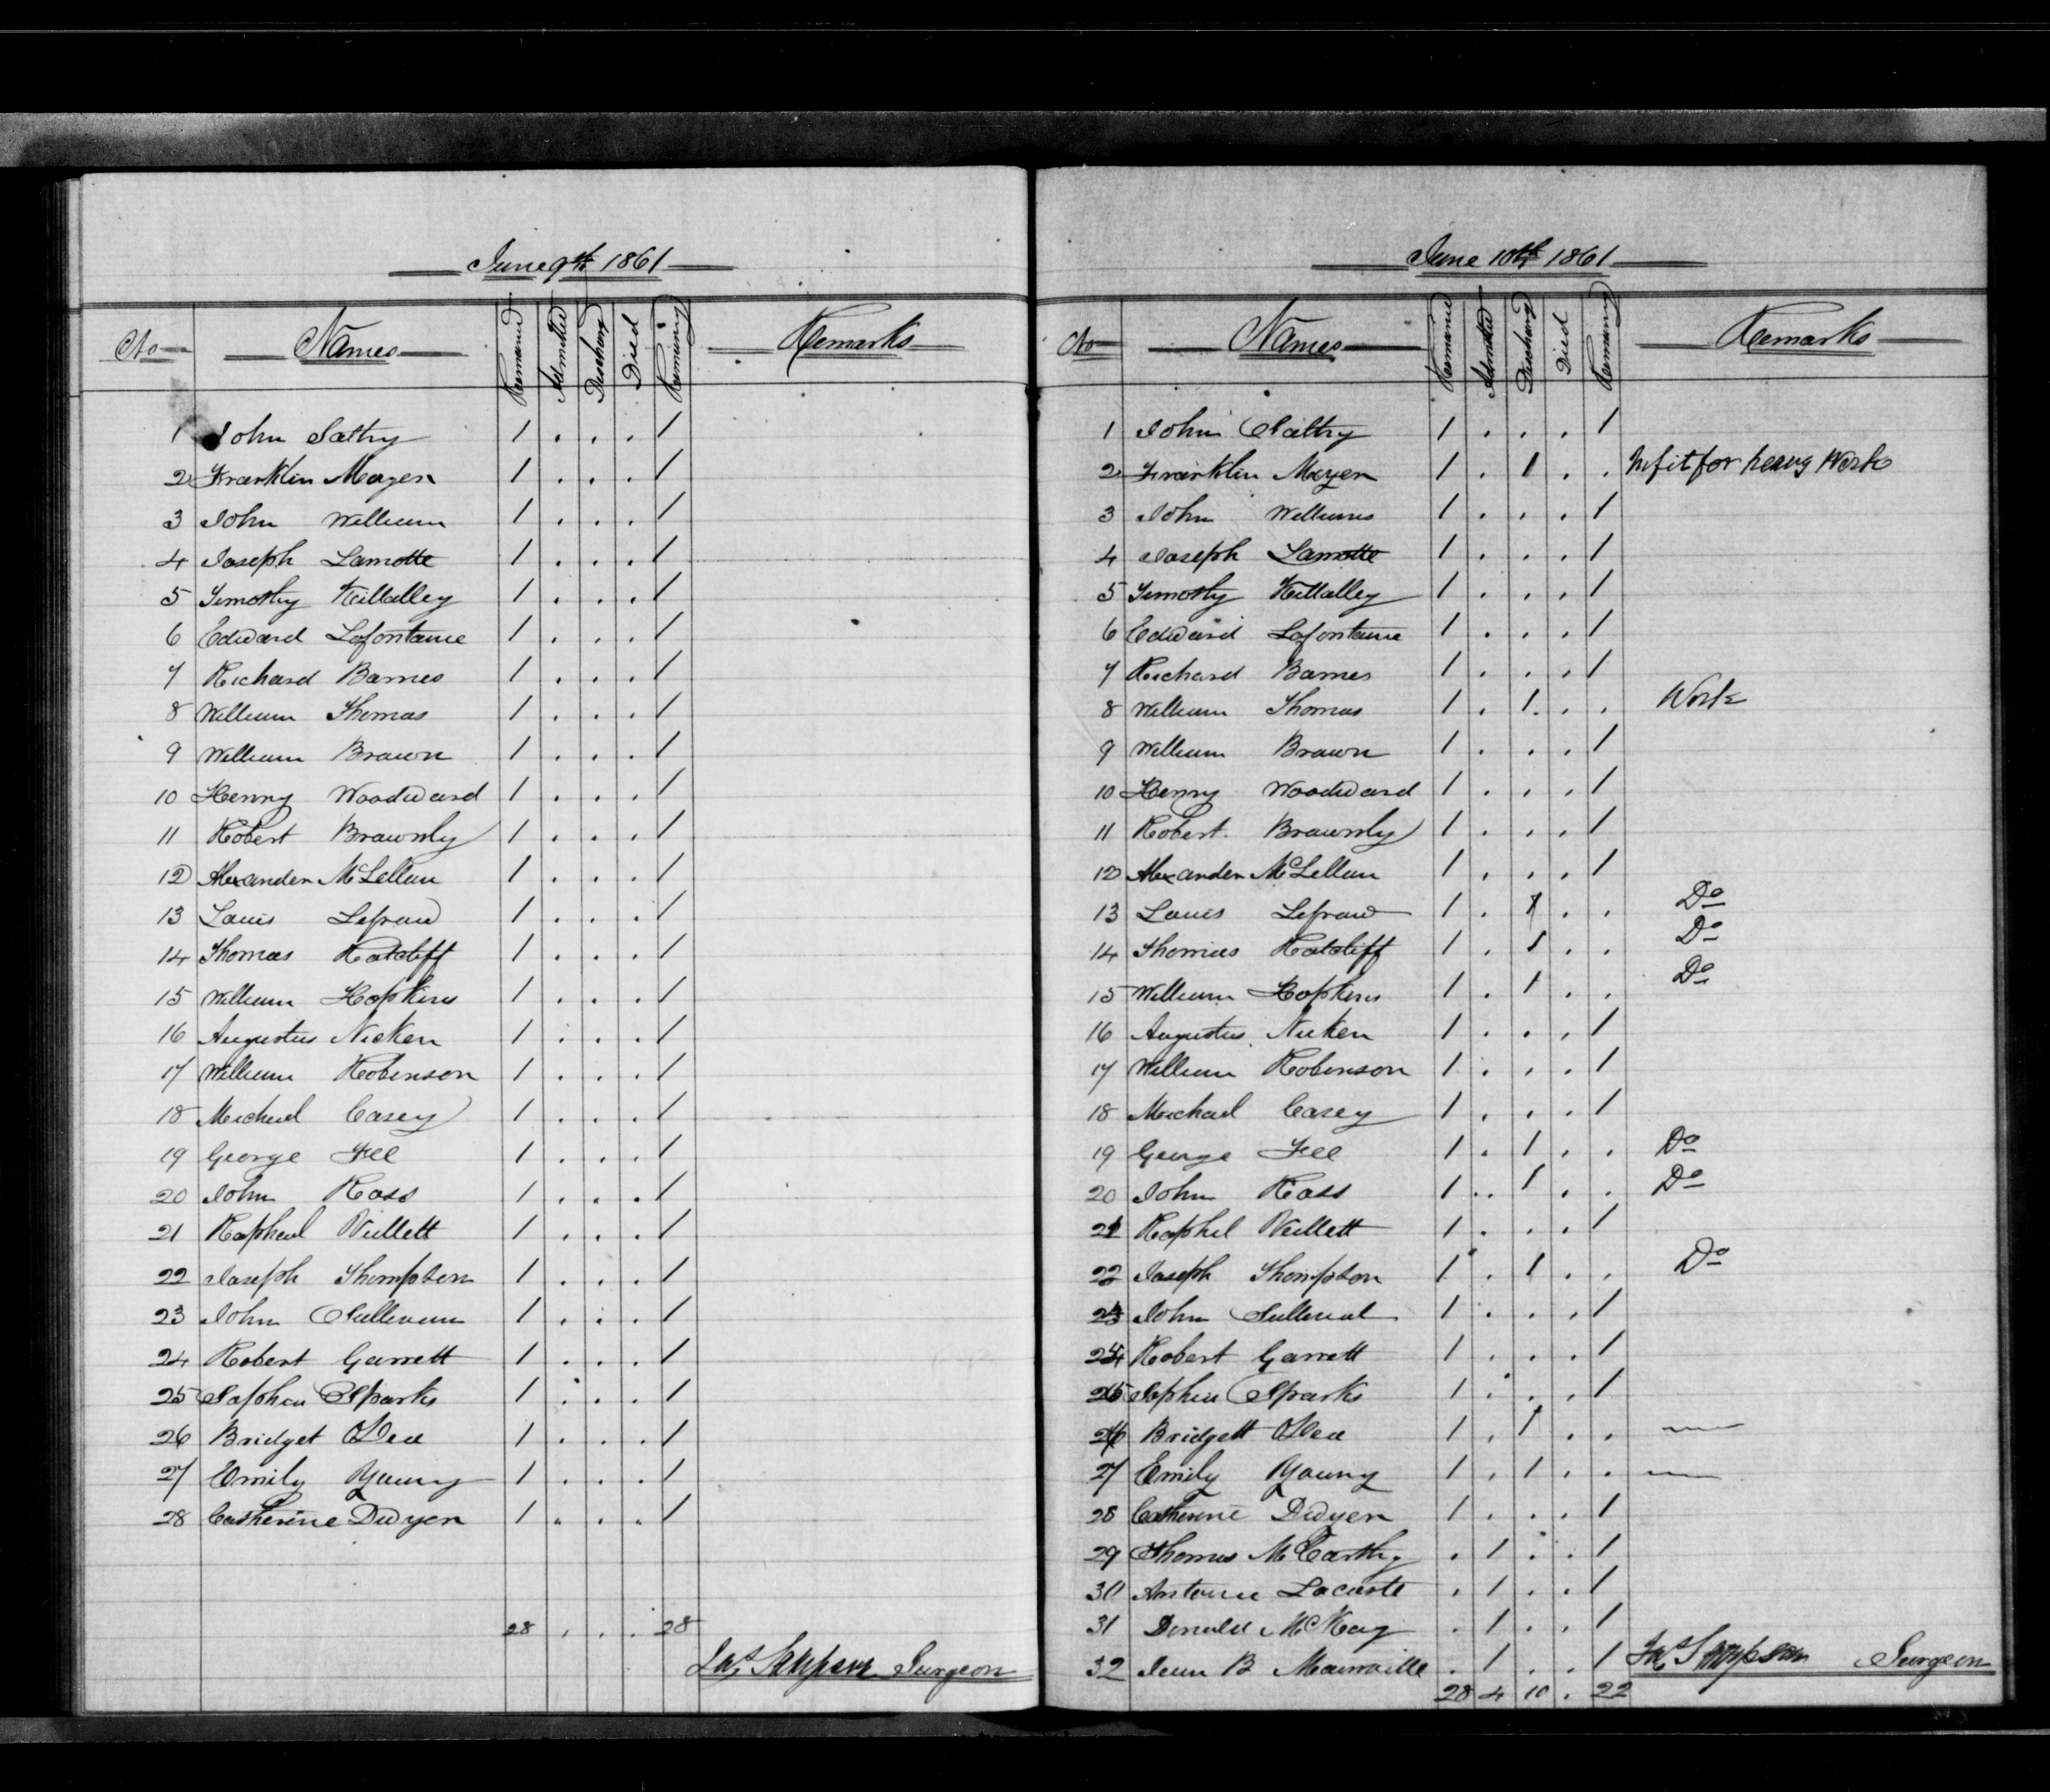 June 9th 1861
No Names Remained Admitted Discharg Died Remaining Remarks
1 John Salthy 1 . . . 1
2 Franklin Mayer 1 . . . 1
3 John William 1 . . . 1
4 Joseph Lamotte 1 . . . 1
5 Timothy Killalley 1 . . . 1
6 Edward Lafontaine 1 . . . 1
7 Richard Barnes 1 . . . 1
8 William Thomas 1 . . . 1
9 William Brown 1 . . . 1
10 Henry Woodward 1 . . . 1
11 Robert Brownly 1 . . . 1
12 Alexander McLellan 1 . . . 1
13 Louis 1 . . . 1
14 Thomas Ratcliff 1 . . . 1
15 William Hopkins 1 . . . 1
16 Augustus Nicken 1 . . . 1
17 William Robinson 1 . . . 1
18 Michael Casey 1 . . . 1
19 George Fee 1 . . . 1
20 John Ross 1 . . . 1
21 Rapheal Willett 1 . . . 1
22 Joseph Thompson 1 . . . 1
23 John Sullivan 1 . . . 1
24 Robert Garrett 1 . . . 1
25 Sparks 1 . . . 1
26 Bridget O'Dea 1 . . . 1
27 Emily Young 1 . . . 1
28 Catherine Dwyer 1 . . . 1
28 . . . 28
Jas Sampson Surgeon
June 10th 1861
No Names Remained Admitted Discharg Died Remaining Remarks
1 John Salthy 1 . . . 1
2 Franklin Mayer 1 . 1 . . Unfit for heavy Work
3 John Williams 1 . . . 1
4 Joseph Lamotte 1 . . . 1
5 Timothy Killalley 1 . . . 1
6 Edward Lafontaine 1 . . . 1
7 Richard Barnes 1 . . . 1
8 William Thomas 1 . 1 . . Work
9 William Brown 1 . . . 1
10 Henry Woodward 1 . . . 1
11 Robert Brownly 1 . . . 1
12 Alexander McLellan 1 . . . 1
13 Louis 1 . 1 . . Do
14 Thomas Ratcliff 1 . 1 . . Do
15 William Hopkins 1 . 1 . . Do
16 Augustus Nicken 1 . . . 1
17 William Robinson 1 . . . 1
18 Michael Casey 1 . . . 1
19 George Fee 1 . 1 . . Do
20 John Ross 1 . 1 . . Do
21 Raphel Willett 1 . . . 1
22 Joseph Thompson 1 . 1 . . Do
23 John 1 . . . 1
24 Robert Garrett 1 . . . 1
25 Sparks 1 . . . 1
26 Bridgett O'Dea 1 . 1 . . —
27 Emily Young 1 . 1 . . —
28 Catherine Dwyer 1 . . . 1
29 Thomas McCarthy . 1 . . 1
30 Antoine Lacoste . 1 . . 1
31 Donald McKay . 1 . . 1
32 Jean B . 1 . . 1
28 4 10 . 22
Jas Sampson Surgeon